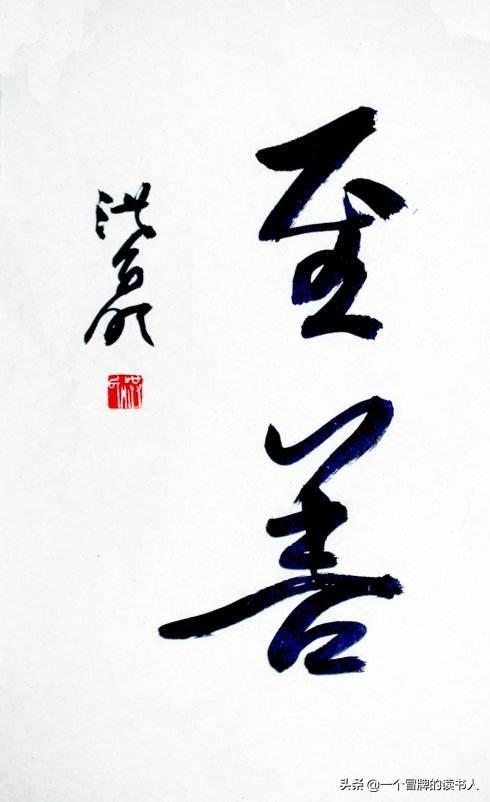 至善
洪
头条 @一个冒牌的读书人